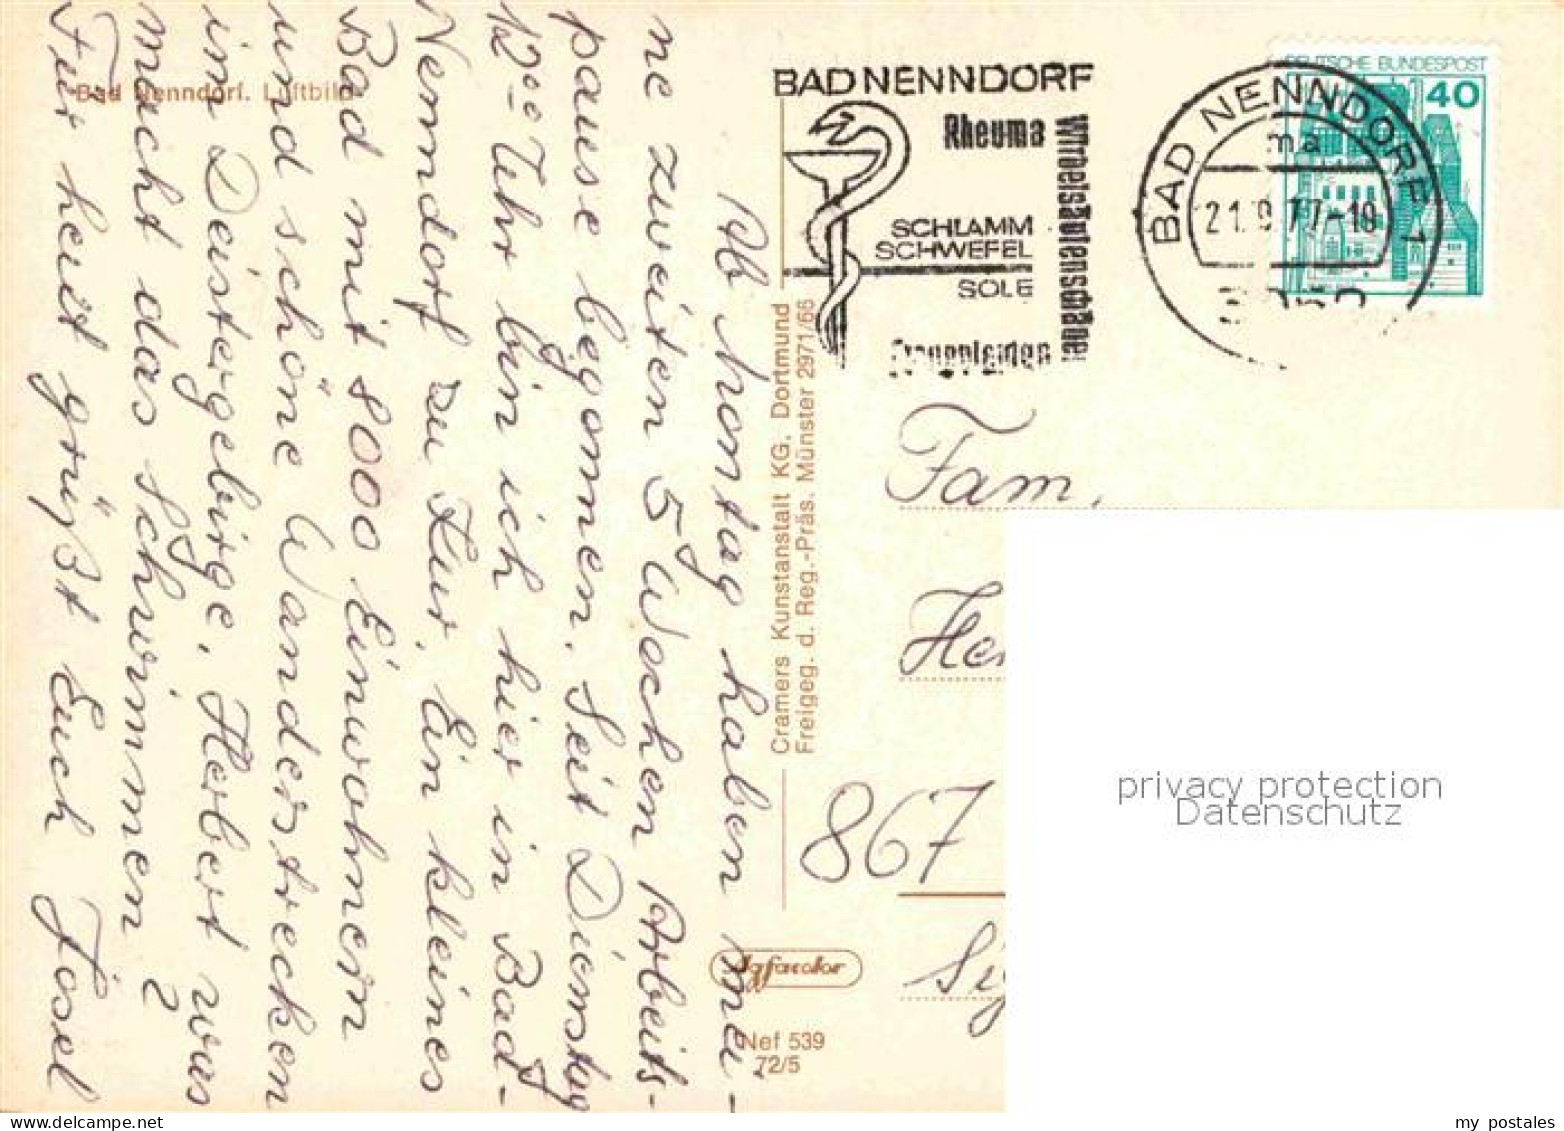 Bad Nenndorf. Luftbild
BAD NENNDORF
Rheuma
Wirbelsäulenschäden
SCHLAMM
SCHWEFEL
SOLE
Frauenleiden
BAD NENNDORF 1
ma
21.9.77-19
DEUTSCHE BUNDESPOST
40
Ab Montag haben mei-
ne zweiten 5 Wochen Arbeits-
pause begonnen. Seit Dienstag
12°° Uhr bin ich hier in Bad-
Nenndorf zu Kur. Ein kleines
Bad mit 8000 Einwohnern
und schöne Wanderstrecken
im Deistergebirge. Herbert was
macht das Schwimmen?
Für heut grüßt Euch Josel
Cramers Kunstanstalt KG, Dortmund
Freigeg. d. Reg.-Präs. Münster 2971/66
Fam.
867
Agfacolor
Nef 539
72/5
privacy protection
Datenschutz
www.delcampe.net
my postales